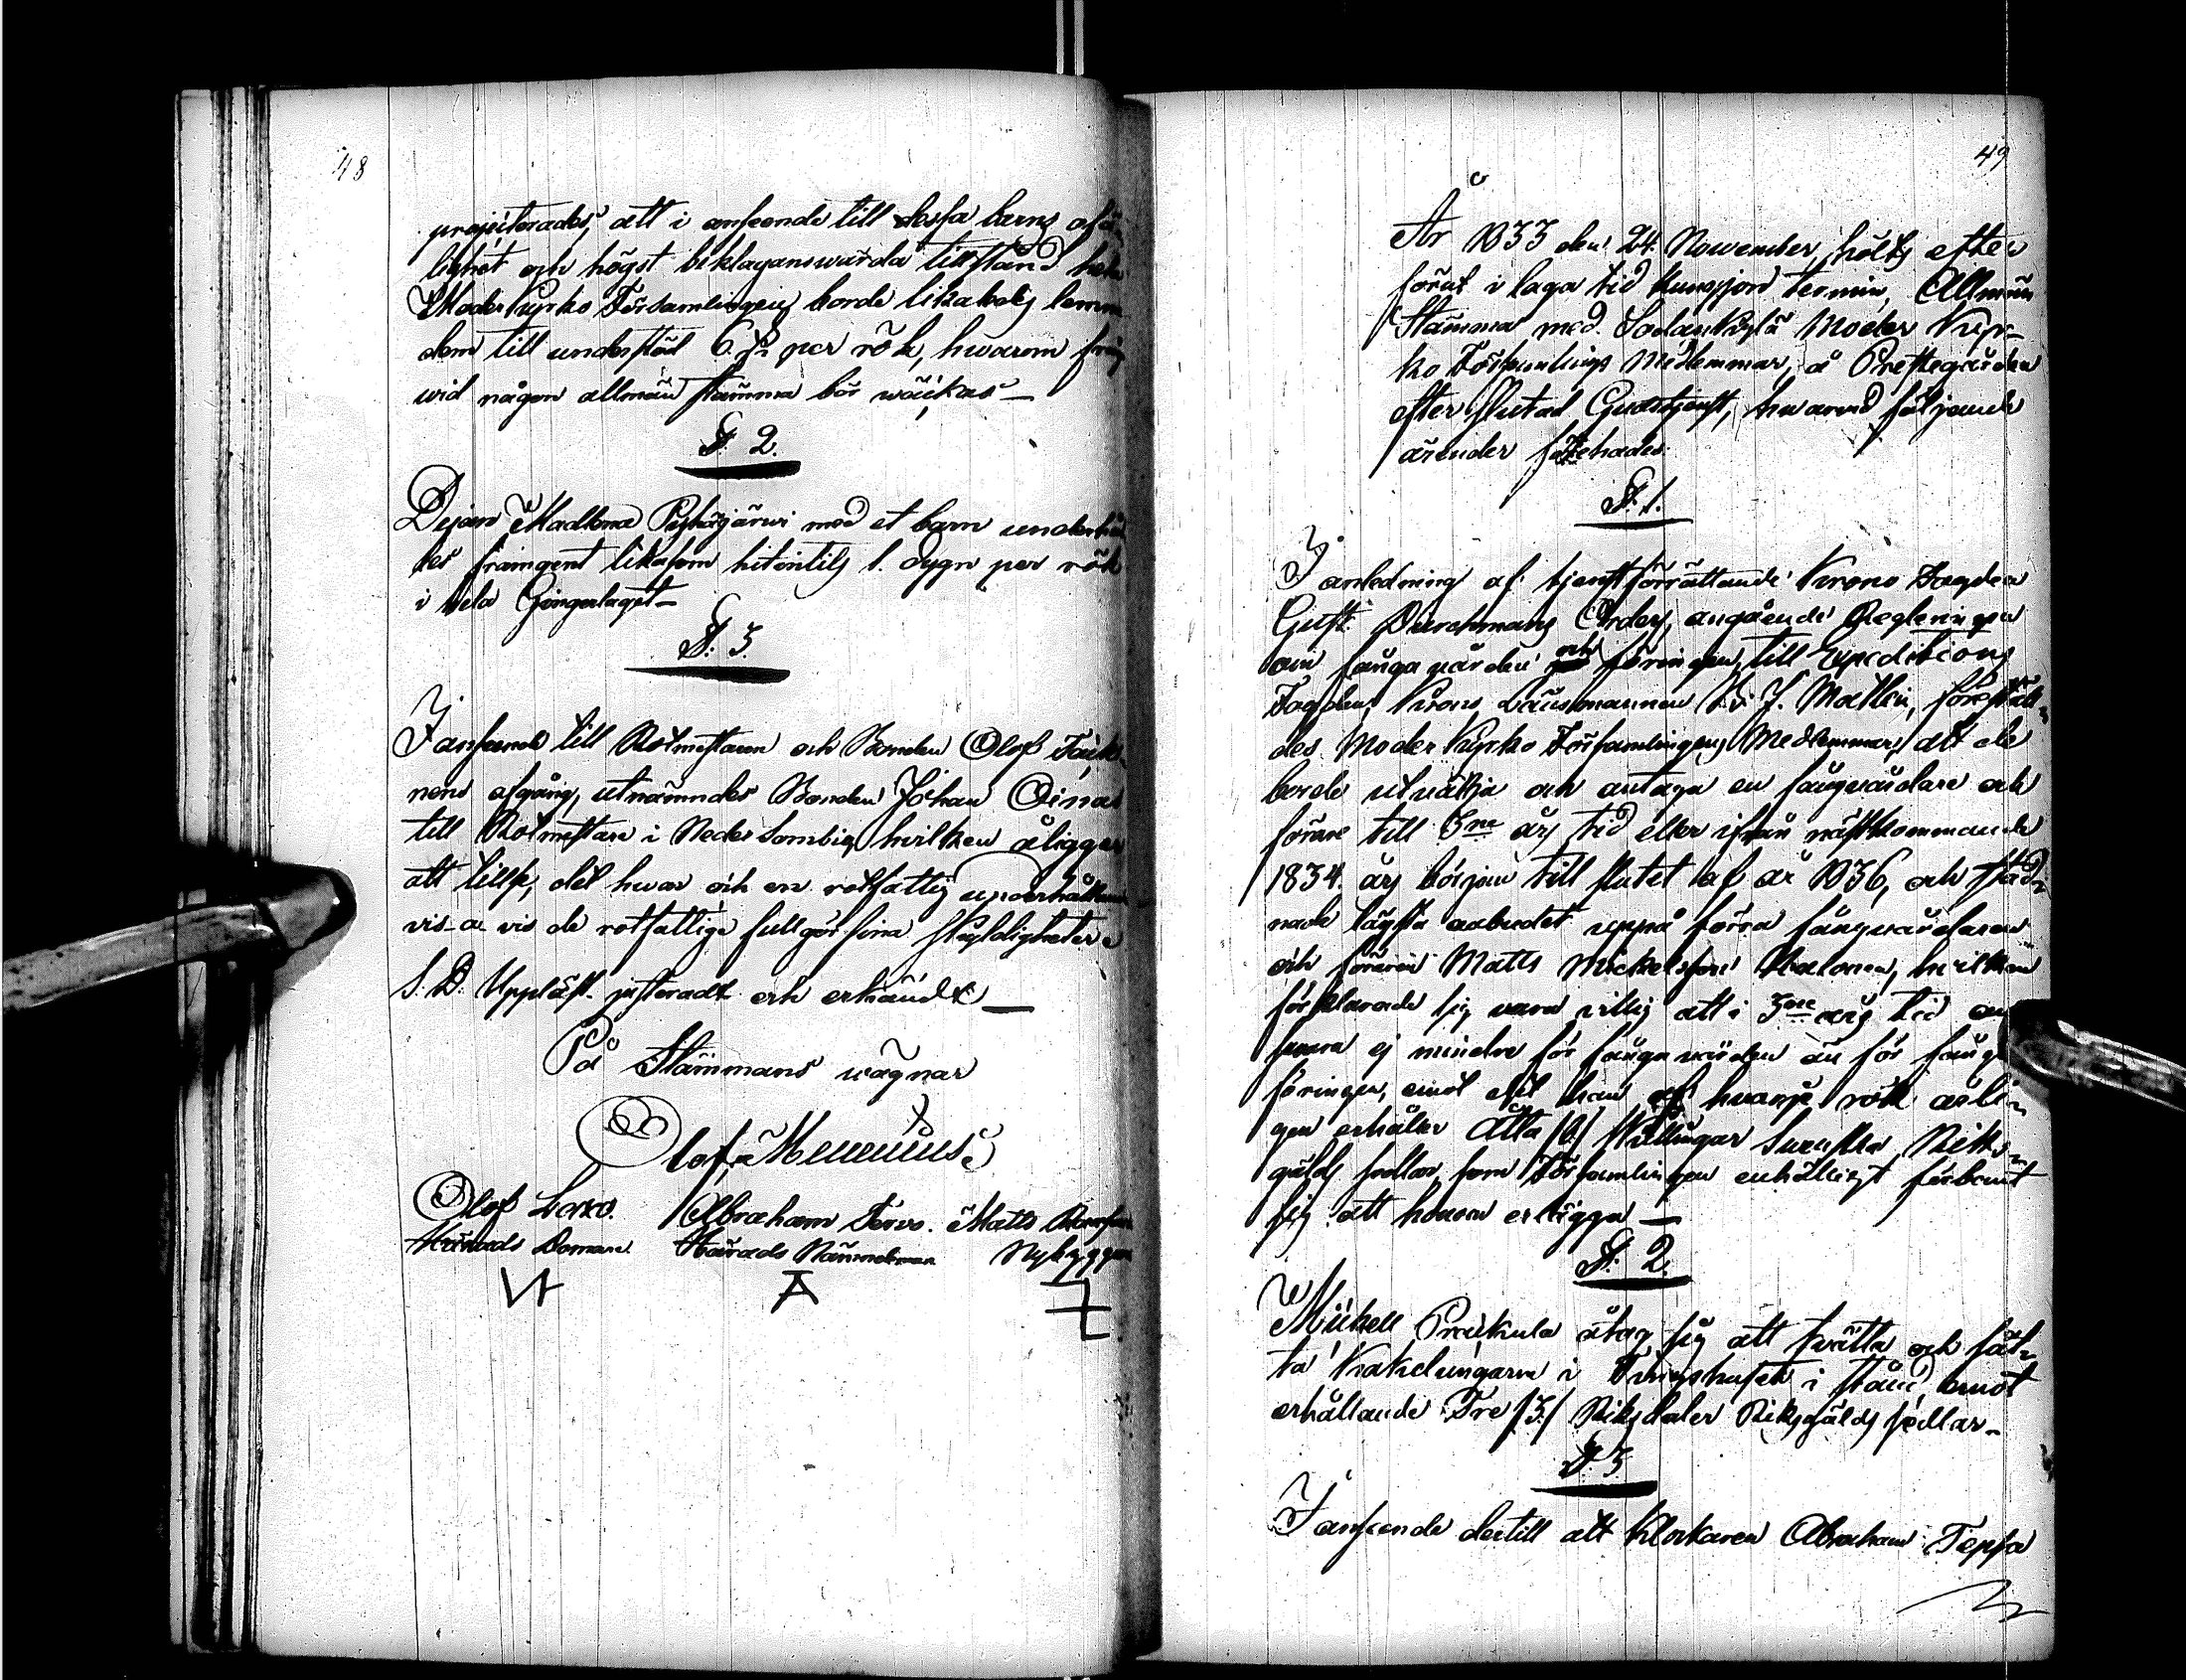 48
projecterades, att i anseende till dessa barns ofär-
lighet och högst beklagansvärda tillstånd hela
Moder Kyrko Församlingen borde likaledes lemna
dem till underståd 6 per rök, hwarom fråg
wid någon allmän stämma bör wäckas —
§. 2.
Dejan Madlena Pyhäjärwi med et barn underhål
les framgent likasom hitintils 1. dygn per rök
i hela Gingerlaget —
§. 3.
I anseende till Rotmästaren och Bonden Olof
nens afgång, utnämndes Bonden Johan Oinas
till Rotmästare i Neder Sombio, hvilken åligger
att tillse, det hwar och en rotfattig underhållare
vis-a vis de rotfattige fullgör sina skyldigheter
S. D. Uppläst justeradt och erkändt —
På Stämmans wägnar
Olof Mennius
Olof Abraham Matts
Härads Domare. Härads Nämndeman Nybyggare
49
År 1833 den 24. November, hölts efter
förut i laga tid kungjord termin, Allmän
Stämma med Sodankylä Moder Kyr-
ko Församlings Medlemmar, å Prestegården
efter slutad Gudstjenst, hwarvid följande
ärender förehades:
§. 1.
I anledning af tjenstförrättande Krono Fogden
Gust. Durchmans Order, angående Regleringen
om fångavården och föringen, till Expeditions
Fogden, Krono Länsmannen Matlin, föreställ-
des Moder Kyrko Församlingens Medlemmar, att de
borde utvälja och antaga en fångvårdare och
förare till 3ne års tid eller ifrån nästkommande
1834. års början till slutet af år 1836, och stad-
nade lägsta anbudet uppå förra fångvårdaren
och föraren Matts Mickelsson hvilken
förklarade sig vara villig att i 3ne års tid an
svara ej mindre för fånga vården än för fång
föringen, emot det han af hvarje rök årli-
gen erhåller åtta /8/ Skillingar Svenska Riks-
gälds sedlar, som Församlingen enhälligt förbandt
sig att honom erlägga —
§. 2.
Mickell Präikula åtog sig att tvätta och sät-
ta Kakelungarne i Tingshuset i stånd, emot
erhållande Tre /3/ Riksdaler Riksgälds sedlar —
§. 3
I anseende dertill att Klockaren Abraham Tepsa